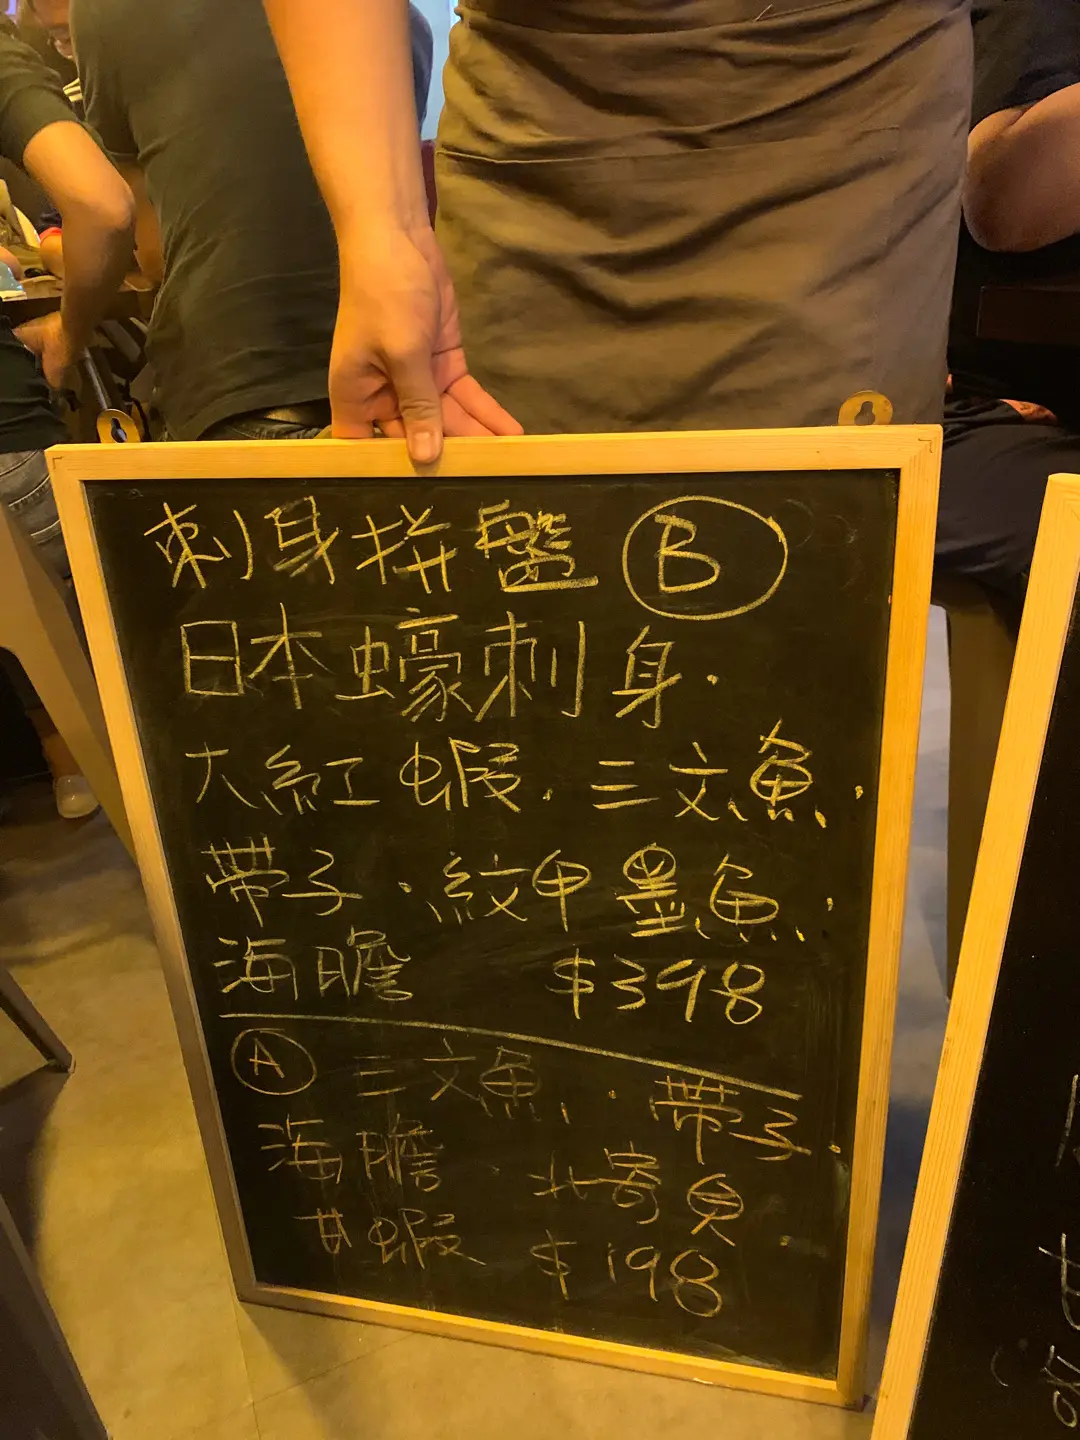 刺身拼盤 Ⓑ
日本蠔刺身.
大紅蝦.三文魚.
帶子.紋甲墨魚.
海膽 $398
Ⓐ 三文魚.帶子.
海膽 北寄貝.
甘蝦 $198